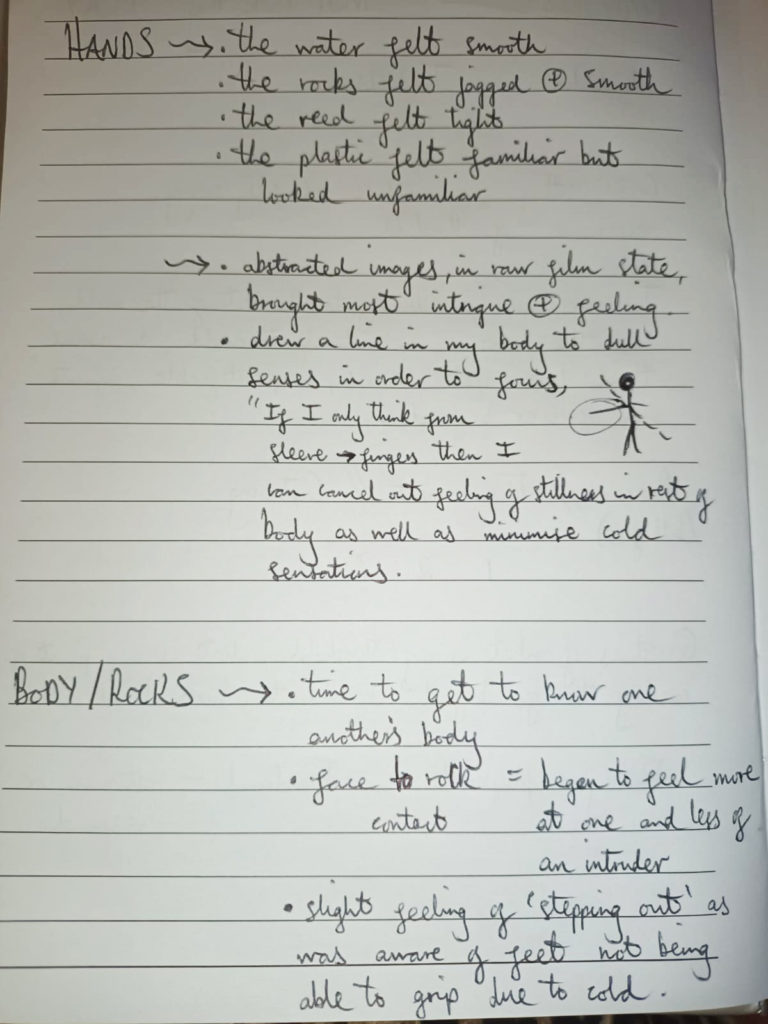 HANDS ⟿ · the water felt smooth
· the rocks felt jagged ⊕ smooth
· the reed felt tight
· the plastic felt familiar but
looked unfamiliar
⟿ · abstracted images, in raw film state,
brought most intrigue ⊕ feeling.
· drew a line in my body to dull
senses in order to focus,
"If I only think from
sleeve → fingers then I
can cancel out feeling of stillness in rest of
body as well as minimise cold
sensations.
BODY/ROCKS ⟿ · time to get to know one
another's body
· face to rock = began to feel more
contact at one and less of
an intruder
· slight feeling of 'stepping out' as
was aware of feet not being
able to grip due to cold.